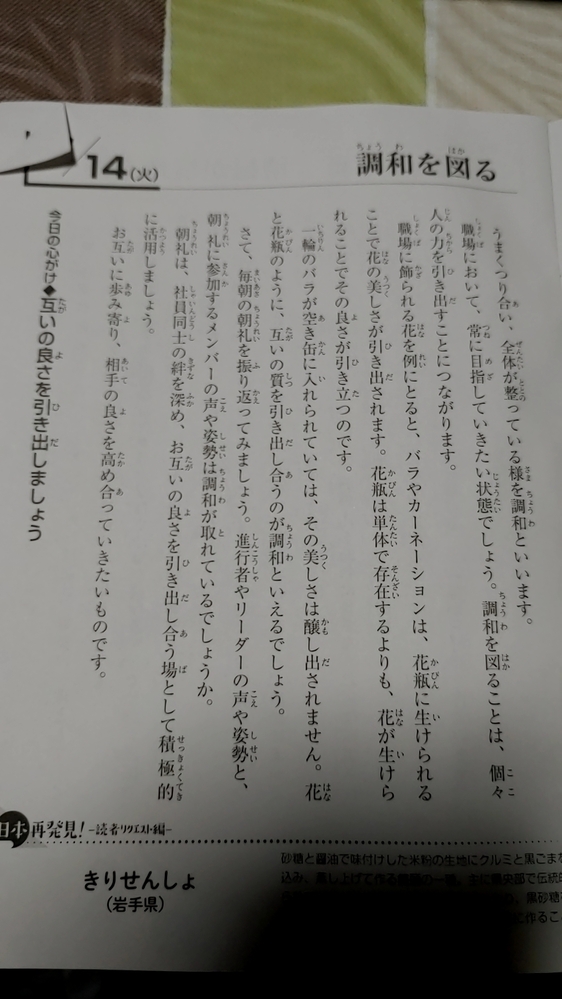 14(火)
調和を図る
うまくつり合い、全体が整っている様を調和といいます。
職場において、常に目指していきたい状態でしょう。調和を図ることは、個々
人の力を引き出すことにつながります。
職場に飾られる花を例にとると、バラやカーネーションは、花瓶に生けられる
ことで花の美しさが引き出されます。花瓶は単体で存在するよりも、花が生けら
れることでその良さが引き立つのです。
一輪のバラが空き缶に入れられていては、その美しさは醸し出されません。花
と花瓶のように、互いの質を引き出し合うのが調和といえるでしょう。
さて、毎朝の朝礼を振り返ってみましょう。進行者やリーダーの声や姿勢と、
朝礼に参加するメンバーの声や姿勢は調和が取れているでしょうか。
朝礼は、社員同士の絆を深め、お互いの良さを引き出し合う場として積極的
に活用しましょう。
お互いに歩み寄り、相手の良さを高め合っていきたいものです。
今日の心がけ◆互いの良さを引き出しましょう
日本再発見!-読者リクエスト編-
きりせんしょ
(岩手県)
砂糖と醤油で味付けした米粉の生地にクルミと黒ごまを
込み、蒸し上げて作る
黒砂糖
に作るこ